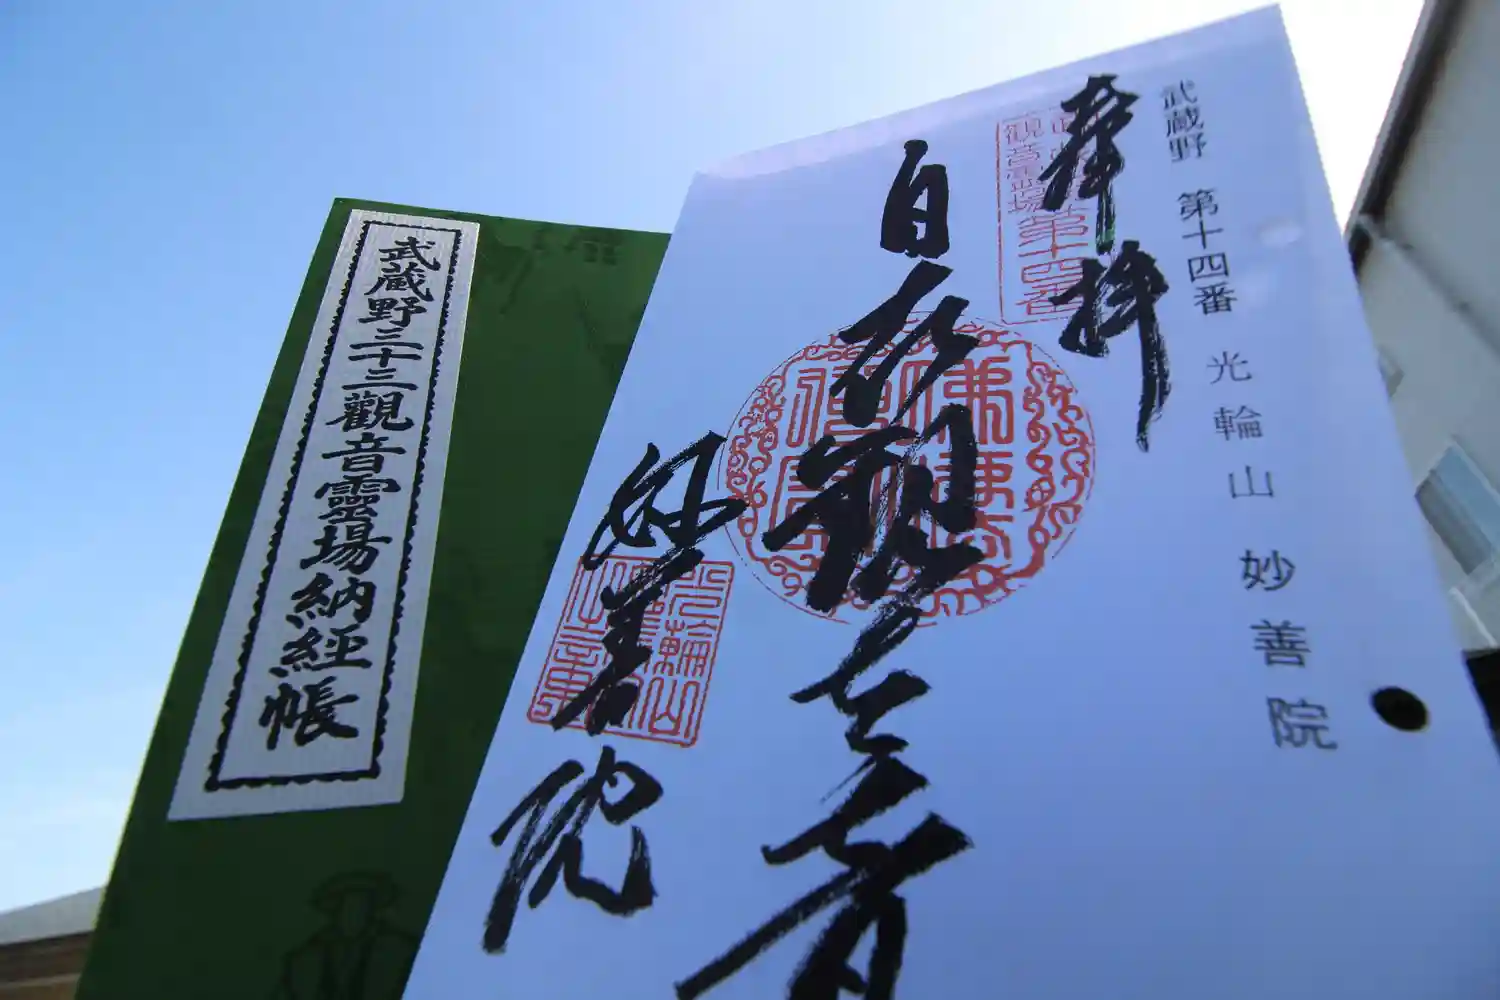 武蔵野三十三觀音靈場納経帳
武蔵野 第十四番 光輪山 妙善院
奉拝
自在観世音
妙善院
観音霊場第十四番
光輪山